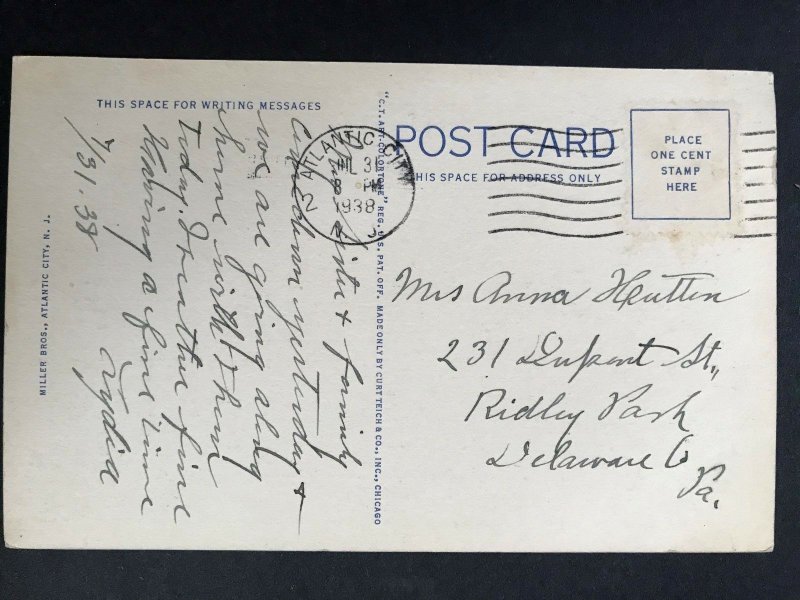 THIS SPACE FOR WRITING MESSAGES
POST CARD
THIS SPACE FOR ADDRESS ONLY
PLACE
ONE CENT
STAMP
HERE
ATLANTIC CITY
2
JUL 31
8 PM
1938
N. J.
7/31.38
Sister & family
Came down yesterday &
we are going along
home with them
today. Weather fine
Having a fine time
Lydia
Mrs Anna Hutten
231 Dupont St,
Ridley Park
Delaware Co
Pa.
MILLER BROS., ATLANTIC CITY, N. J.
"C.T. ART-COLORTONE" REG. U.S. PAT. OFF. MADE ONLY BY CURT TEICH & CO., INC., CHICAGO